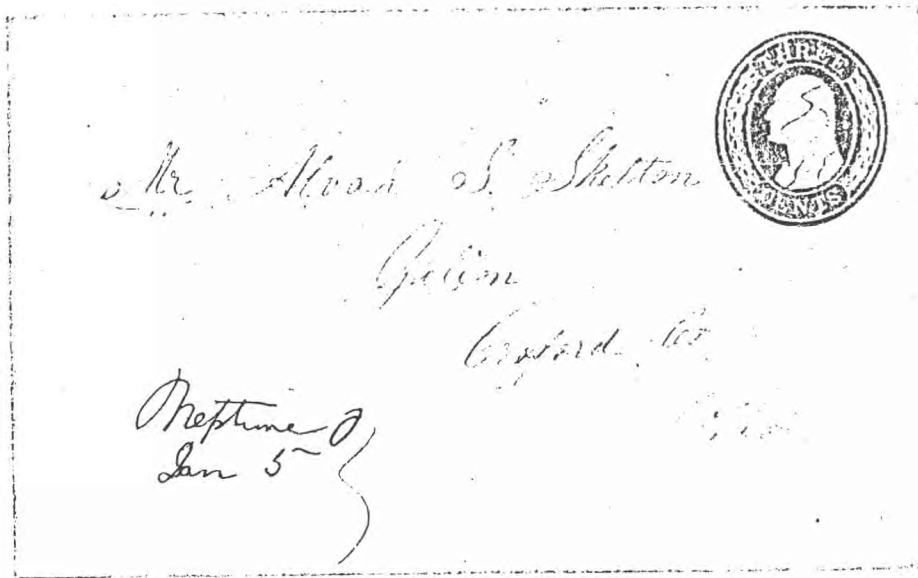 THREE
CENTS
Mr. Alvah S. Shelton
Galion
Croford Co.
Ohio
Neptune O
Jan 5